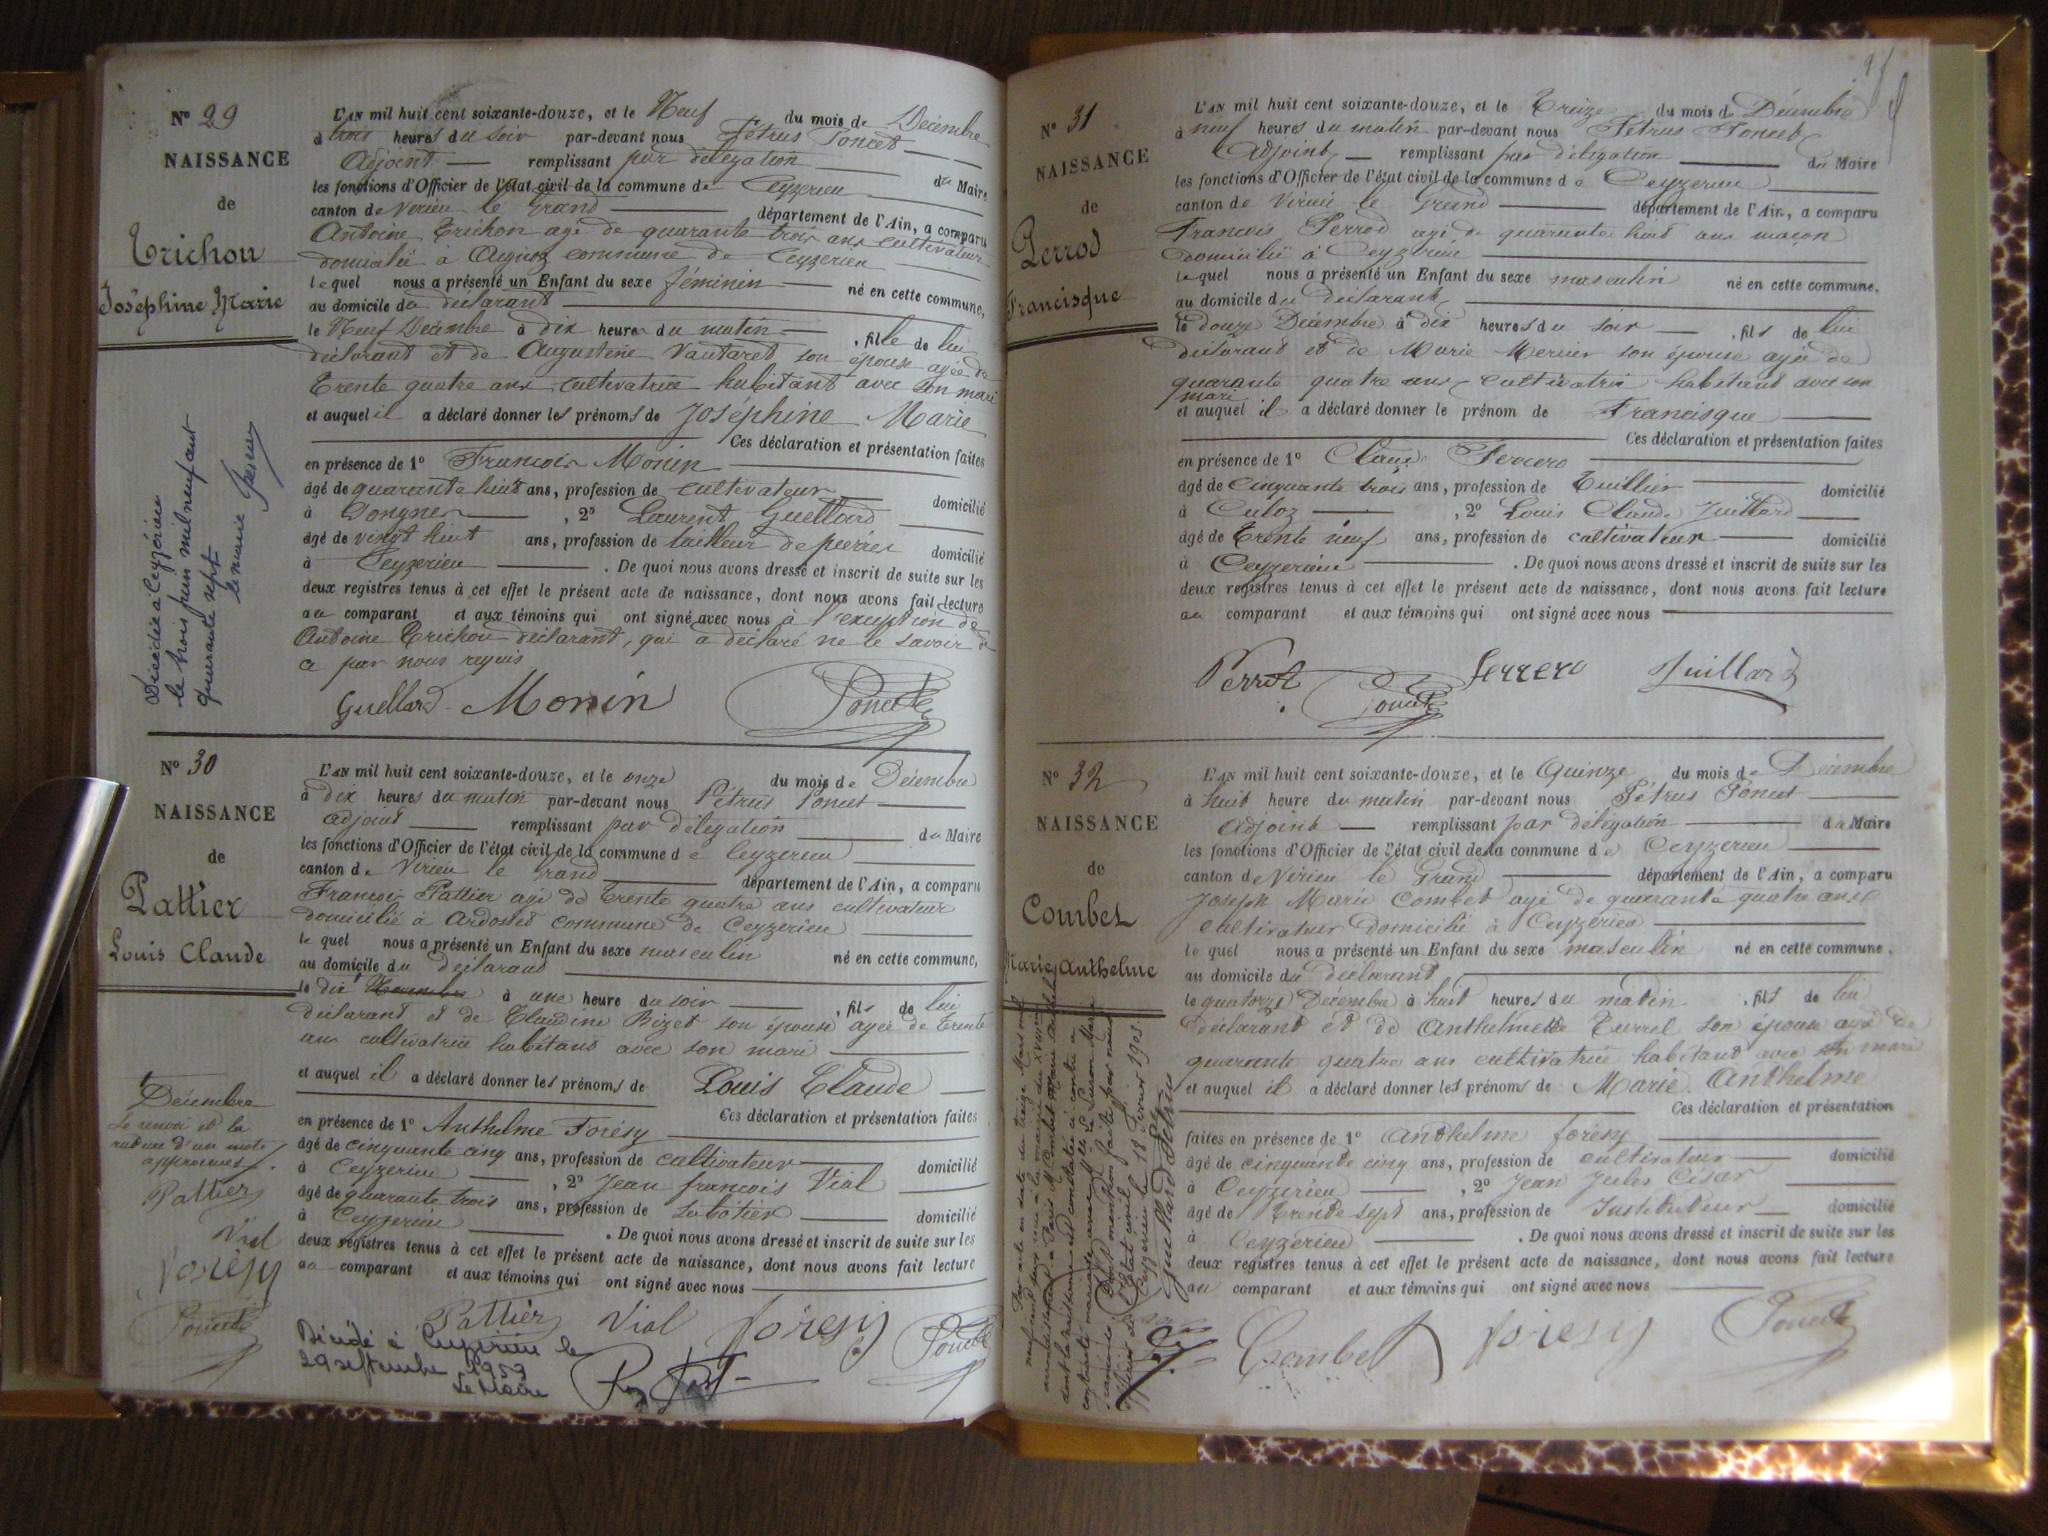 Nº 29
NAISSANCE
de
Trichon
Joséphine Marie
L'AN mil huit cent soixante-douze, et le Neuf du mois de Décembre
à trois heures du soir par-devant nous Pétrus Poncet
Adjoint remplissant par délégation du Maire
les fonctions d'Officier de l'état civil de la commune de Ceyzerieu
canton de Virieu le Grand département de l'Ain, a comparu
Antoine Trichon agé de quarante trois ans cultivateur
domicilié a Aignoz commune de Ceyzerieu
lequel nous a présenté un Enfant du sexe féminin né en cette commune,
au domicile du déclarant
le Neuf Décembre à dix heures du matin, fille de lui
déclarant et de Augustine Vautaret son épouse agée de
Trente quatre ans cultivatrice habitant avec son mari
et auquel il a déclaré donner les prénoms de Joséphine Marie
Ces déclaration et présentation faites
en présence de 1º François Monin
âgé de quarante huit ans, profession de cultivateur domicilié
à Dongner, 2º Laurent Guellard
âgé de vingt huit ans, profession de tailleur de pierres domicilié
à Ceyzerieu. De quoi nous avons dressé et inscrit de suite sur les
deux registres tenus à cet effet le présent acte de naissance, dont nous avons fait lecture
au comparant et aux témoins qui ont signé avec nous à l'exception de
Antoine Trichon déclarant, qui a déclaré ne le savoir de
ce par nous requis
Guellard Monin Poncet
Décédée à Ceyzérieu
le trois juin mil neuf cent
quarante sept
le maire
Nº 30
NAISSANCE
de
Pattier
Louis Claude
L'AN mil huit cent soixante-douze, et le onze du mois de Décembre
à dix heures du matin par-devant nous Pétrus Poncet
adjoint remplissant par délégation du Maire
les fonctions d'Officier de l'état civil de la commune de Ceyzerieu
canton de Virieu le Grand département de l'Ain, a comparu
François Pattier agé de Trente quatre ans cultivateur
domicilié à Ardosset commune de Ceyzerieu
lequel nous a présenté un Enfant du sexe masculin né en cette commune,
au domicile du déclarant
le dix Novembre à une heure du soir, fils de lui
déclarant et de Claudine Bizet son épouse agée de Trente
ans cultivatrice habitant avec son mari
et auquel il a déclaré donner les prénoms de Louis Claude
Ces déclaration et présentation faites
en présence de 1º Anthelme Forésy
âgé de cinquante cinq ans, profession de cultivateur domicilié
à Ceyzerieu, 2º Jean françois Vial
âgé de quarante trois ans, profession de Sabotier domicilié
à Ceyzerieu. De quoi nous avons dressé et inscrit de suite sur les
deux registres tenus à cet effet le présent acte de naissance, dont nous avons fait lecture
au comparant et aux témoins qui ont signé avec nous
Pattier Vial forésy Poncet
Décembre
Le renvoi et la
rature d'un mot
approuvés
Pattier
Vial
forésy
Poncet
Décédé à Ceyzérieu le
29 septembre 1953
Le Maire
Nº 31
NAISSANCE
de
Perrod
Francisque
L'AN mil huit cent soixante-douze, et le Treize du mois de Décembre
à neuf heures du matin par-devant nous Pétrus Poncet
Adjoint remplissant par délégation du Maire
les fonctions d'Officier de l'état civil de la commune de Ceyzerieu
canton de Virieu le Grand département de l'Ain, a comparu
François Perrod agé de quarante huit ans maçon
domicilié à Ceyzérieu
lequel nous a présenté un Enfant du sexe masculin né en cette commune,
au domicile du déclarant
le douze Décembre à dix heures du soir, fils de lui
déclarant et de Marie Mercier son épouse agée de
quarante quatre ans cultivatrice habitant avec son
mari
et auquel il a déclaré donner le prénom de Francisque
Ces déclaration et présentation faites
en présence de 1º Claude Ferrero
âgé de Cinquante trois ans, profession de Tuillier domicilié
à Culoz, 2º Louis Claude Juillard
âgé de Trente neuf ans, profession de cultivateur domicilié
à Ceyzerieu. De quoi nous avons dressé et inscrit de suite sur les
deux registres tenus à cet effet le présent acte de naissance, dont nous avons fait lecture
au comparant et aux témoins qui ont signé avec nous
Perrot Poncet Ferrero Juillard
Nº 32
NAISSANCE
de
Combet
Marie Anthelme
L'AN mil huit cent soixante-douze, et le Quinze du mois de Décembre
à huit heure du matin par-devant nous Pétrus Poncet
Adjoint remplissant par délégation du Maire
les fonctions d'Officier de l'état civil de la commune de Ceyzerieu
canton de Virieu le Grand département de l'Ain, a comparu
Joseph Marie Combet agé de quarante quatre ans
cultivateur domicilié à Ceyzerieu
lequel nous a présenté un Enfant du sexe masculin né en cette commune,
au domicile du déclarant
le quatorze Décembre à huit heures du matin, fils de lui
déclarant et de Anthelmette Turrel son épouse agé de
quarante quatre ans cultivatrice habitant avec son mari
et auquel il a déclaré donner les prénoms de Marie Anthelme
Ces déclaration et présentation
faites en présence de 1º Anthelme forésy
âgé de cinquante cinq ans, profession de cultivateur domicilié
à Ceyzerieu, 2º Jean Jules César
âgé de Trente sept ans, profession de Instituteur domicilié
à Ceyzerieu. De quoi nous avons dressé et inscrit de suite sur les
deux registres tenus à cet effet le présent acte de naissance, dont nous avons fait lecture
au comparant et aux témoins qui ont signé avec nous
Combet forésy Poncet